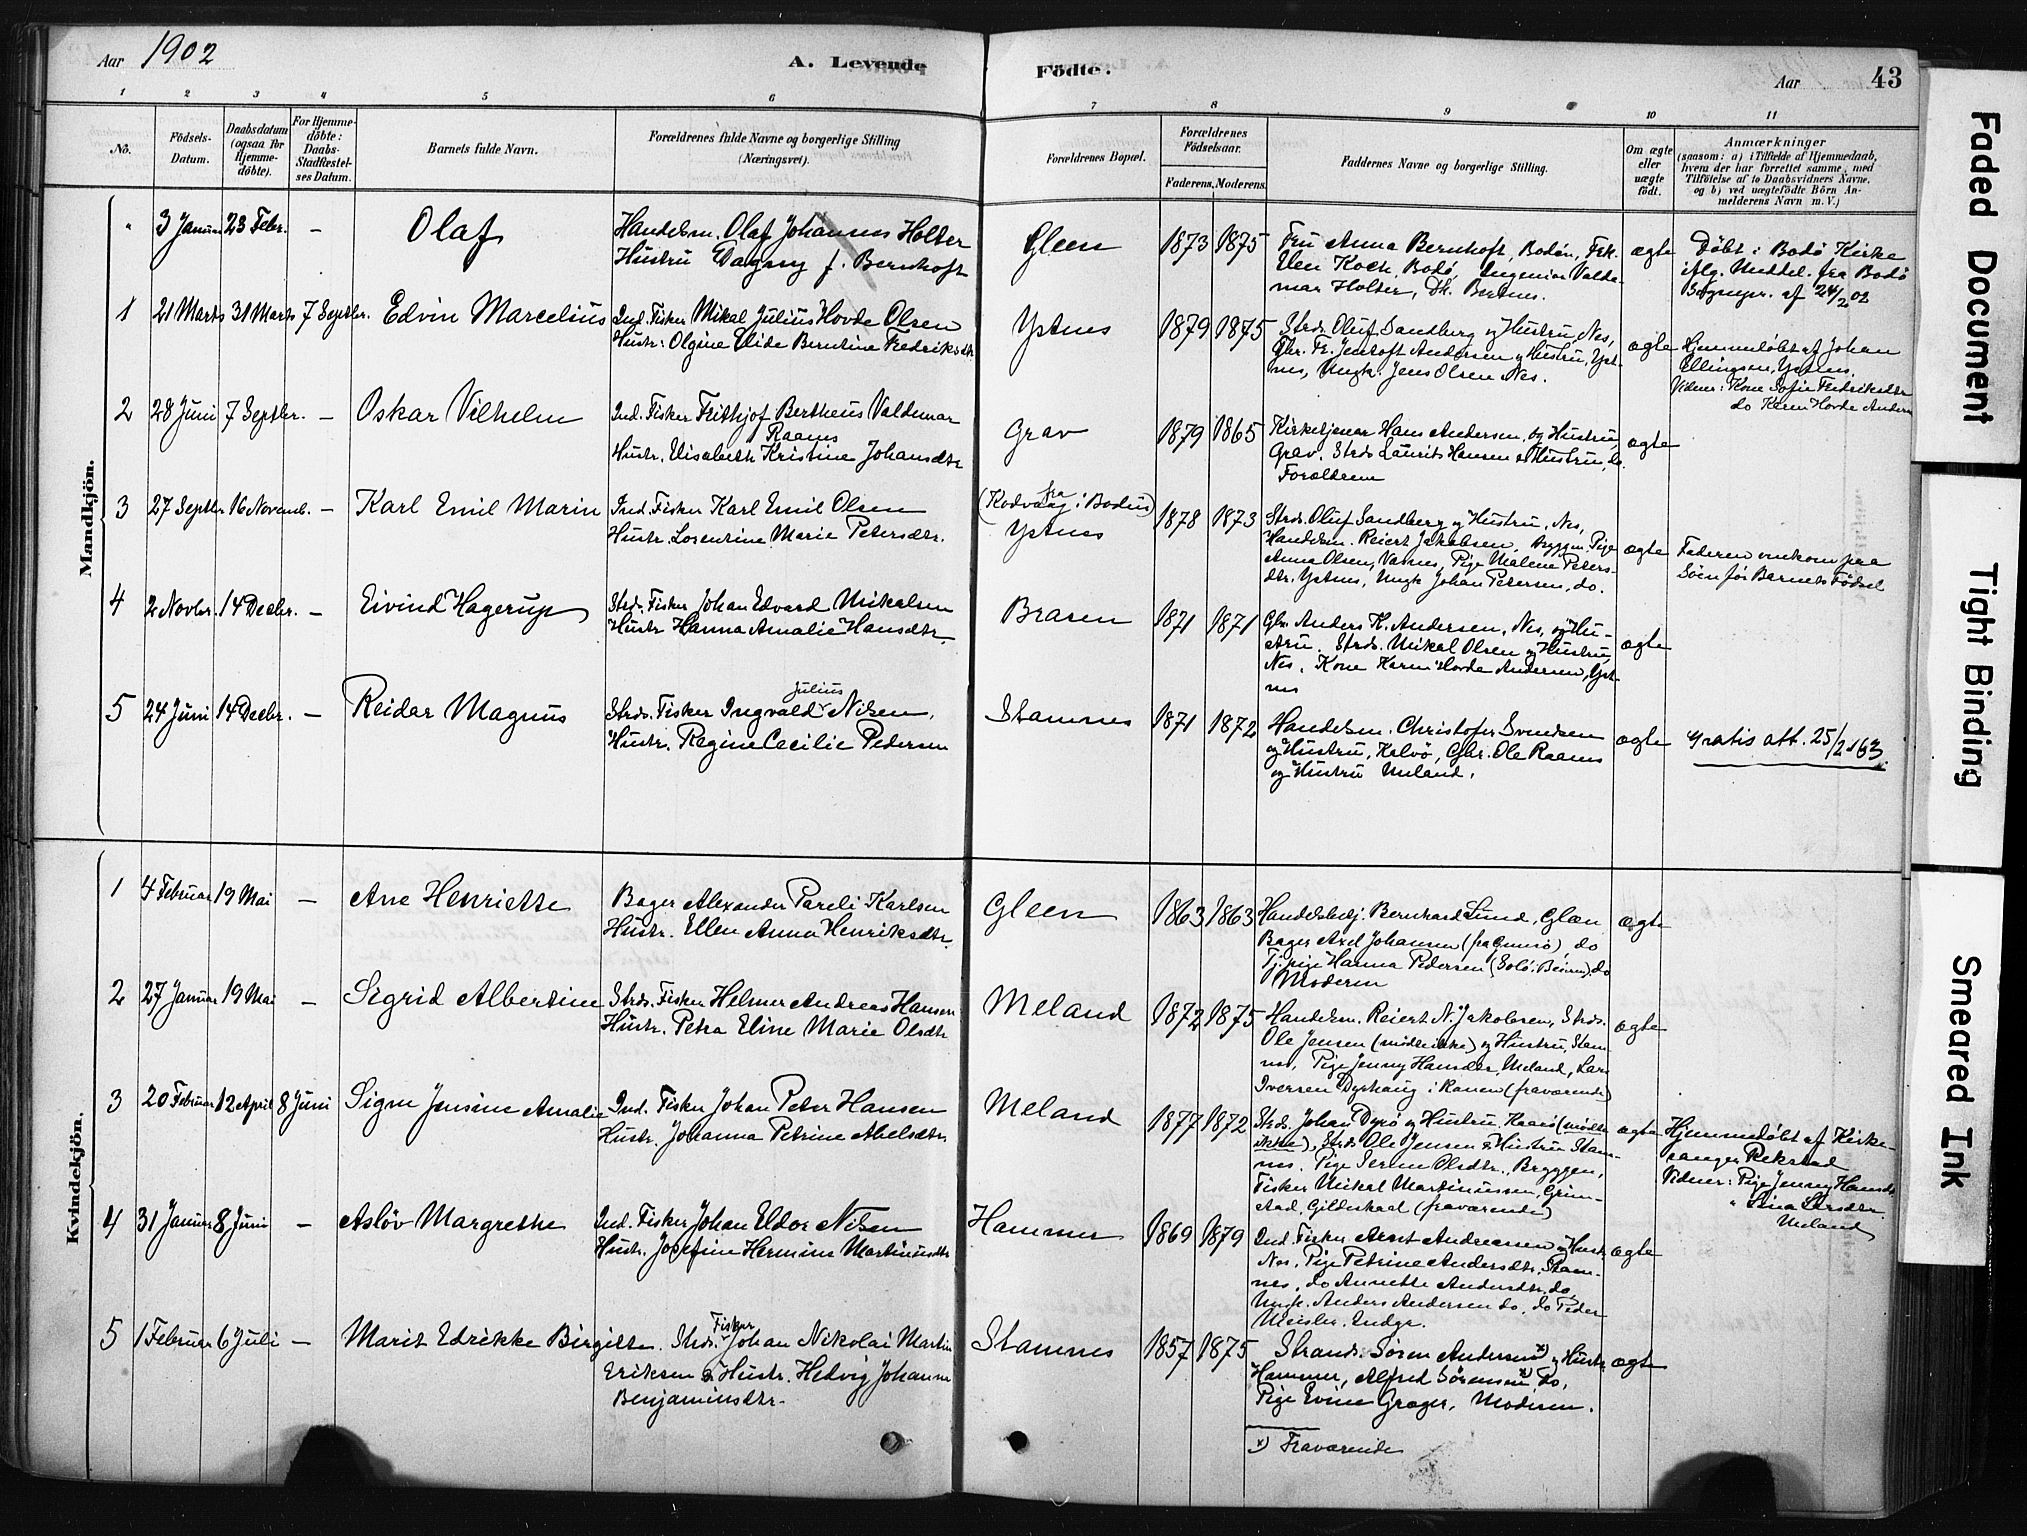 Aar 1902
A. Levende Fødte.
Aar 43
1 2 3 4 5 6 7 8 9 10 11
No. Födsels-Datum. Daabsdatum (ogsaa for Hjemme-döbte). For Hjemme-döbte: Daabs-Stadfæstel-ses Datum. Barnets fulde Navn. Forældrenes fulde Navne og borgerlige Stilling (Næringsvei). Forældrenes Bopæl. Forældrenes Födselsaar. Faderens. Moderens. Faddernes Navne og borgerlige Stilling. Om ægte eller uægte födt. Anmærkninger (saasom: a) i Tilfælde af Hjemmedaab, hvem der har forrettet samme, med Tilföielse af to Daabsvidners Navne, og b) ved uægtefödte Börn An-melderens Navn m. V.)
Mandkjön.
" 3 Januar 23 Febr. – Olaf
Handelsm. Olaf Johannes Holter
Hustru Dagny f. Bernhoft
Gleen 1873 1875
Fru Anna Bernhoft, Bodøn, Frk.
Elen Koch, Bodø, Ingeniør Valde-
mar Holter, Dh. Bertnes.
ægte
Døbt i Bodø Kirke
iflg. Meddel. fra Bodø
Sognepr. af 24/2 02
1 21 Marts 31 Marts 7 Septbr. Edvin Marcelius
Ind. Fisker Mikal Julius Hovde Olsen
Hustr: Olgine Elide Berntine Fredriksdtr
Ystnes 1879 1875
Strds. Oluf Sandberg og Hustru, Nes,
Gbr. Fr. Jentoft Andersen og Hustru, Yst-
nes, Ungk. Jens Olsen Nes.
ægte
Hjemmedøbt af Johan
Ellingsen, Ystnes.
Vidner: Kone Sofie Fredriksdtr
do Karen Hovde Andersen
2 28 Juni 7 Septbr. – Oskar Vilhelm
Ind. Fisker Frithjof Bertheus Valdemar
Raanes
Hustr. Elisabeth Kristine Johansdtr
Grav 1879 1865
Kirketjener Hans Andersen og Hustru,
Grav. Strds Laurits Hansen & Hustru, do.
Forældrene
ægte
3 27 Septbr 16 Novemb. – Karl Emil Marin
Ind. Fisker Karl Emil Olsen
Hustr. Lorentine Marie Petersdtr.
(fra Kodvaag i Bodin)
Ystnes 1878 1873
Strds. Oluf Sandberg og Hustru, Nes,
Handelsm. Reiert Jakobsen, Bryggen, Pige
Anna Olsen, Vatnes, Pige Malene Peters-
dtr. Ystnes, Ungk Johan Petersen, do.
ægte
Faderen omkom paa
Søen før Barnets Fødsel
4 2 Novbr. 14 Decbr. – Eivind Hagerup
Strds. Fisker Johan Edvard Mikalsen
Hustr Hanna Amalie Hansdtr
Brasen 1871 1871
Gbr. Anders K. Andersen, Nes, og Hu-
stru. Strds. Mikal Olsen og Hustru,
Nes. Kone Karen Hovde Andersen, Yst-
nes
ægte
5 24 Juni 14 Decbr. – Reidar Magnus
Strds. Fisker Ingvald Julius Nilsen.
Hustr. Regine Cecilie Pedersen
Stamnes 1871 1872
Handelsm. Christofer Svendsen
og Hustru, Kalvø, Gbr. Ole Raanes
og Hustru Meland.
ægte
Gratis att. 25/2 163.
Kvindekjön.
1 4 Februar 19 Mai – Ane Henriette
Bager Alexander Pareli Karlsen
Hustr. Ellen Anna Henriksdtr.
Gleen 1863 1863
Handelsbetj. Bernhard Lund, Glæn
Bager Axel Johansen (fra ), do
Tj. pige Hanna Pedersen (Solø i Beiarn), do
Moderen
ægte
2 27 Januar 19 Mai – Sigrid Albertine
Strds. Fisker Helmer Andreas Hansen
Hustr. Petra Eline Marie Olsdtr
Meland 1872 1875
Handelsm. Reiert N. Jakobsen, Strds.
Ole Jensen (mødte ikke) og Hustru, Stam-
nes, Pige Jenny Hansdtr Meland, Lars
Iversen Dyrhaug i Ranen (fraværende)
ægte
3 20 Februar 12 April 8 Juni Signe Jensine Amalie
Ind. Fisker Johan Peter Hansen
Hustr. Johanna Petrine Abelsdtr.
Meland 1877 1872
Strds. Johan Dyrø og Hustru Raarø (mødte
ikke), Strds Ole Jensen & Hustru Stam-
nes, Pige Serine Olsdtr., Bryggen,
Fisker Mikal Martinussen, Grim-
stad, Gildeskaal (fraværende)
ægte
Hjemmedøbt af Kirke-
sanger Rekstad
Vidner: Pige Jenny Hansdtr
" Lina Larsdtr.
Meland
4 31 Januar 8 Juni – Asløv Margrethe
Ind. Fisker Johan Eldor Nilsen
Hustr. Josefine Hermine Martinusdtr
Hammer 1869 1879
Ind. Fisker Arnt Andreassen og Hustr.
Nes. Pige Petrine Andersdtr. Stam-
nes, do Annette Andersdtr, do,
Ungk. Anders Andersen do, do Peder
Meisler. Indgr.
ægte
5 1 Februar 6 Juli – Marit Edrikke Birgitte.
Strds. Fisker Johan Nikolai Martin
Eriksen & Hustr. Hedvig Johanne
Benjaminsdtr.
Stamnes 1857 1875
Strands. Søren Andersen x) og Hustr.
Hammer, Alfred Sørensen x) do,
Pige Evine Grøger, Moderen.
x) Fraværende
ægte
Faded Document
Tight Binding
Smeared Ink